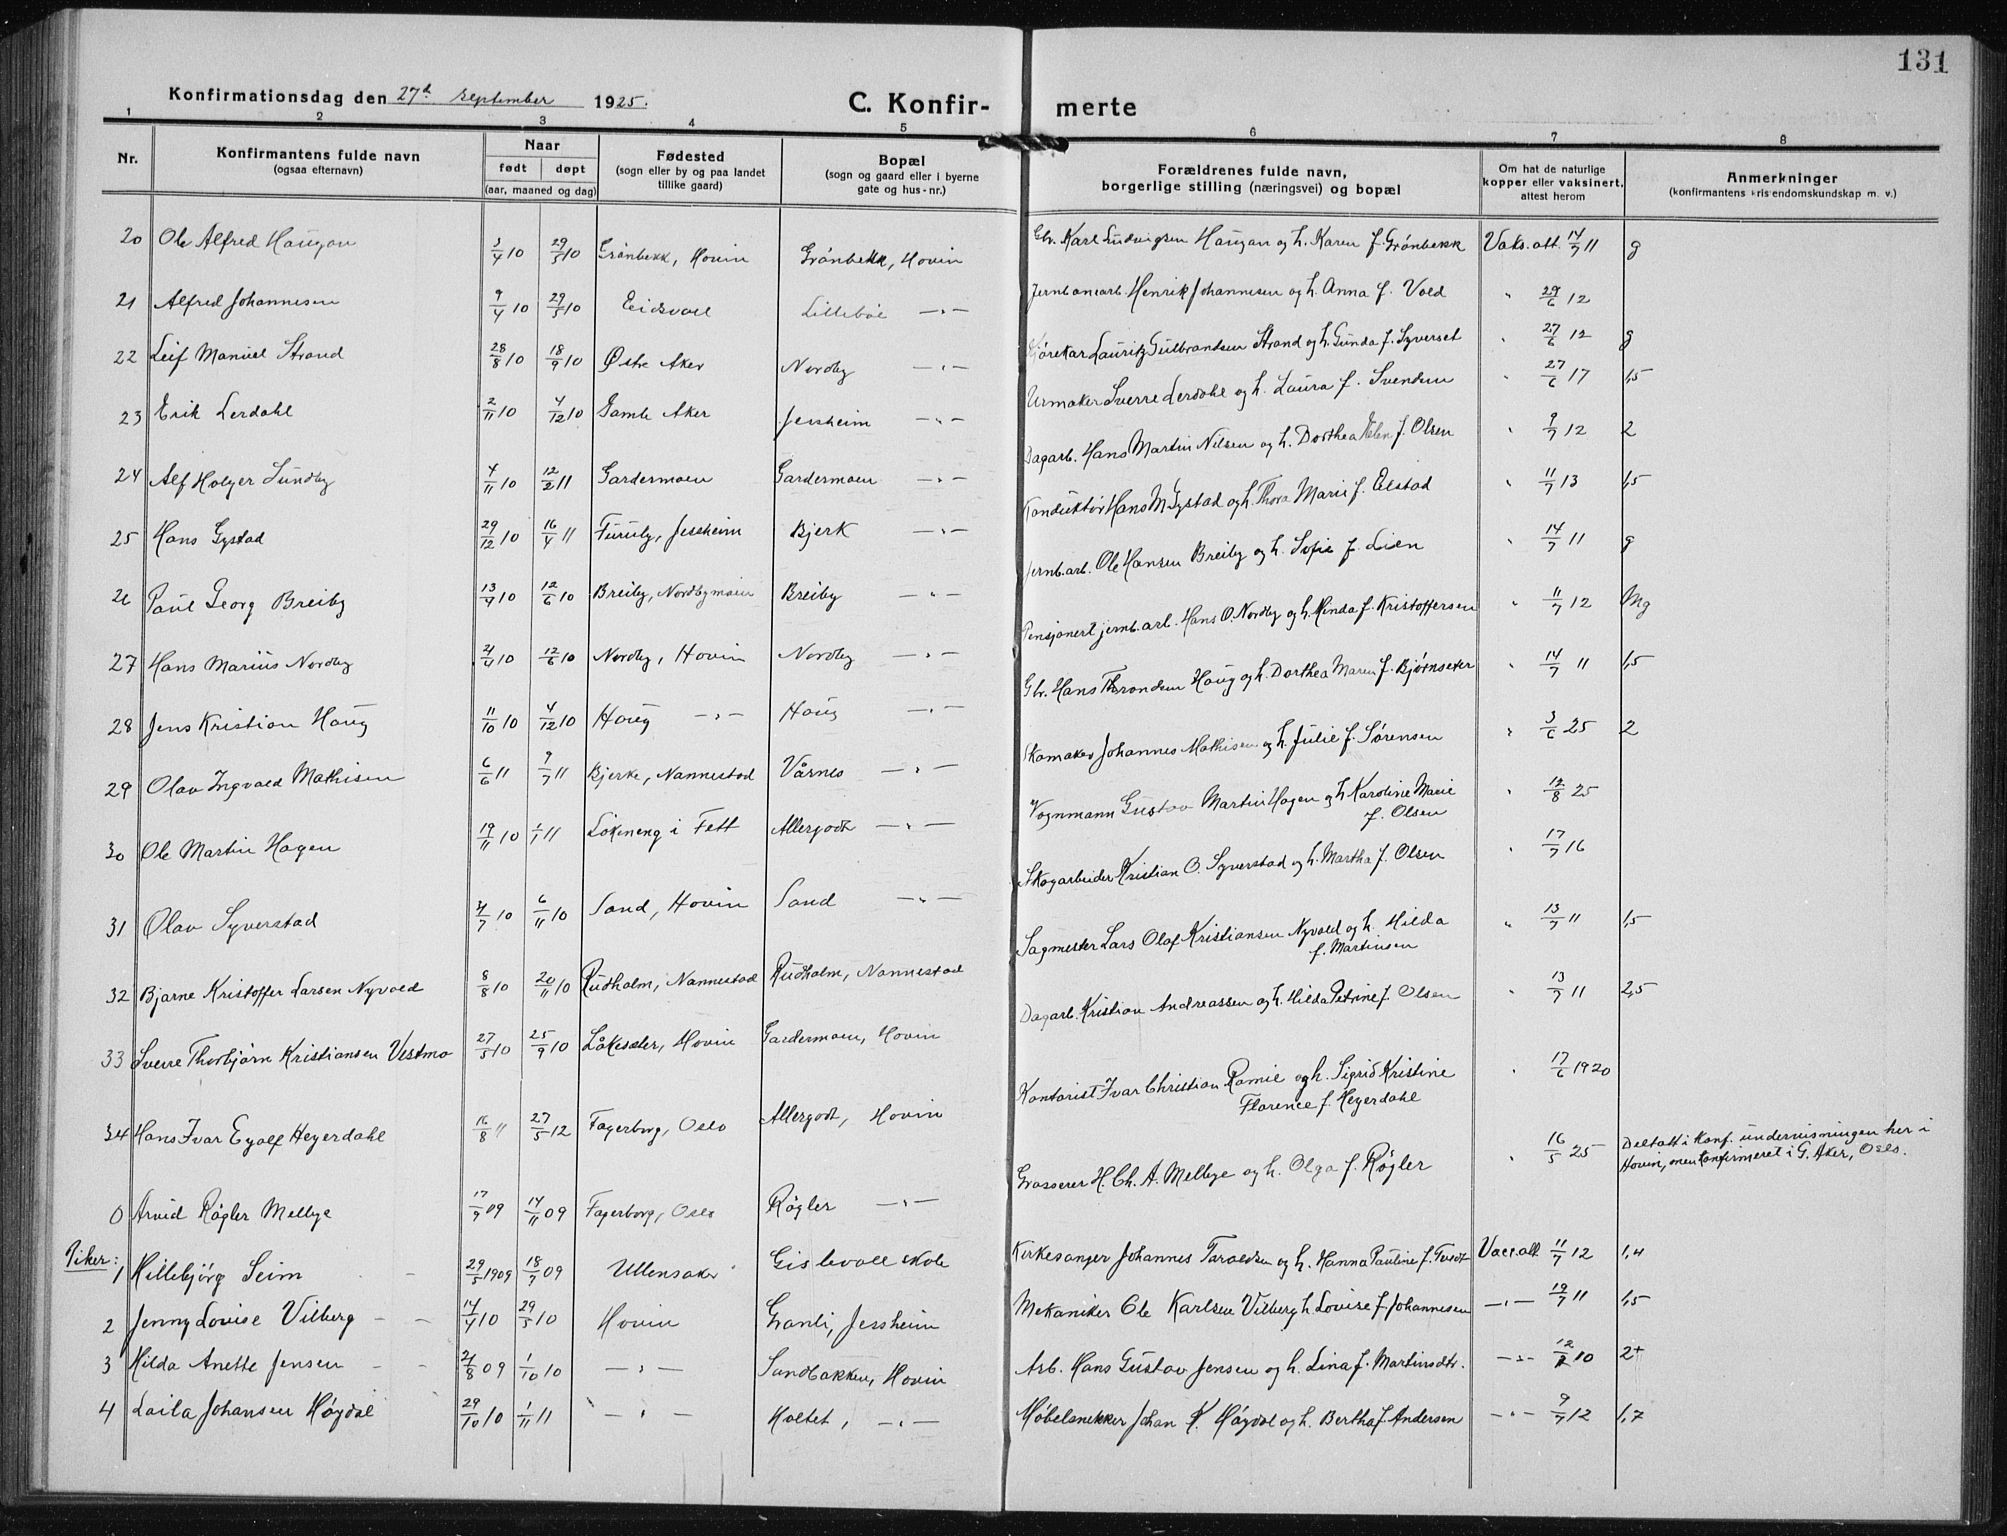 131
Konfirmationsdag den 27de september 1925.
C. Konfirmerte
1 2 3 4 5 6 7 8
Nr. | Konfirmantens fulde navn (ogsaa efternavn) | Naar født | døpt (aar, maaned og dag) | Fødested (sogn eller by og paa landet tillike gaard) | Bopæl (sogn og gaard eller i byerne gate og hus-nr.) | Forældrenes fulde navn, borgerlige stilling (næringsvei) og bopæl | Om hat de naturlige kopper eller vaksinert, attest herom | Anmerkninger (konfirmantens kristendomskundskap m. v.)
20 Ole Alfred Haugan 3/4 10 29/5 10 Grønbekk, Hovin Grønbekk, Hovin Gbr. Karl Ludvigsen Haugan og h. Karen f. Grønbekk Vaks. att. 14/7 11 g
21 Alfred Johannesen 9/4 10 29/5 10 Eidsvoll Lillebøl —"— Jernbanearb. Henrik Johannesen og h. Anna f. Vold " 29/6 12
22 Leif Manuel Strand 28/8 10 18/9 10 Østre Aker Nordby —"— Kjørekar Lauritz Gulbrandsen Strand og h. Gunda f. Syverset " 27/6 12 g
23 Erik Lerdahl 2/11 10 4/12 10 Gamle Aker Jessheim —"— Urmaker Sverre Lerdahl og h. Laura f. Svendsen " 27/6 17 1,5
24 Alf Holger Sundby 4/11 10 12/2 11 Gardermoen Gardermoen —"— Dagarb. Hans Martin Nilsen og h. Dorthea Helen f. Olsen " 9/7 12 2
25 Hans Gystad 29/12 10 16/4 11 Furuly, Jessheim Bjerk —"— Konduktør Hans M Gystad og h. Thora Marie f. Elstad " 11/7 13 1,5
26 Paul Georg Breiby 13/4 10 12/6 10 Breiby, Nordbymoen Breiby —"— Jernb.arb. Ole Hansen Breiby og h. Sofie f. Lien " 14/7 11 g
27 Hans Marius Nordby 21/4 10 12/6 10 Nordby, Hovin Nordby —"— Pensjonert jernb.arb. Hans O. Nordby og h. Minda f. Kristoffersen " 11/7 12 Mg
28 Jens Kristian Haug 11/10 10 4/12 10 Haug —"— Haug —"— Gbr. Hans Throndsen Haug og h. Dorthea Maren f. Bjørnseter " 14/7 11 1,5
29 Olav Ingvald Mathisen 6/6 11 9/7 11 Bjerke, Nannestad Vårnes —"— Skomaker Johannes Mathisen og h. Julie f. Sørensen " 3/6 25 2
30 Ole Martin Hagen 19/11 10 1/1 11 Løkeneng i Fett Allergodt —"— Vognmann Gustav Martin Hagen og h Karoline Marie
f. Olsen " 12/8 25
31 Olav Syverstad 21/7 10 6/11 10 Sand, Hovin Sand —"— Skogarbeider Kristian O. Syverstad og h. Martha f. Olsen " 17/7 16
32 Bjarne Kristoffer Larsen Nyvold 8/8 10 20/11 10 Rudholm, Nannestad Rudholm, Nannestad Sagmester Lars Olaf Kristiansen Nyvold og h. Hilda
f. Martinsen " 13/7 11 1,5
33 Sverre Thorbjørn Kristiansen Vestmo 27/5 10 25/9 10 Låkesæter, Hovin Gardermoen, Hovin Dagarb. Kristian Andreassen og h. Hilda Petrine f. Olsen " 13/7 11 2,5
34 Hans Ivar Eyolf Heyerdahl 16/8 11 27/5 12 Fagerborg, Oslo Allergodt, Hovin Kontorist Ivar Christian Ramie og h. Sigrid Kristine
Florence f. Heyerdahl " 17/6 1920
0 Arvid Røgler Melbye 17/9 09 14/11 09 Fagerborg, Oslo Røgler —"— Grosserer H. Ch. A. Melbye og h. Olga f. Røgler " 16/5 25 Deltatt i konf. undervisningen her i
Hovin, men konfirmeret i G. Aker, Oslo.
Piker:
1 Hillebjørg Seim 29/5 1909 18/7 09 Ullensaker Gislevoll skole Kirkesanger Johannes Taraldsen og h. Hanna Pauline f. Tvedt Vacc. att 11/7 12 1,4
2 Jenny Lovise Vilberg 14/4 10 29/5 10 Hovin Granli, Jessheim Mekaniker Ole Karlsen Vilberg h. Lovise f. Johannesen —"— 19/7 11 1,5
3 Hilda Anette Jensen 21/8 09 1/10 10 —"— Sandbakken, Hovin Arb. Hans Gustav Jensen og h. Lina f. Martinsdtr. —"— 12/2 10 2+
4 Laila Johansen Høydal 29/10 10 1/11 11 —"— Holtet, —"— Møbelsnekker Johan K. Høydal og h. Bertha f. Andersen —"— 9/7 12 1,7